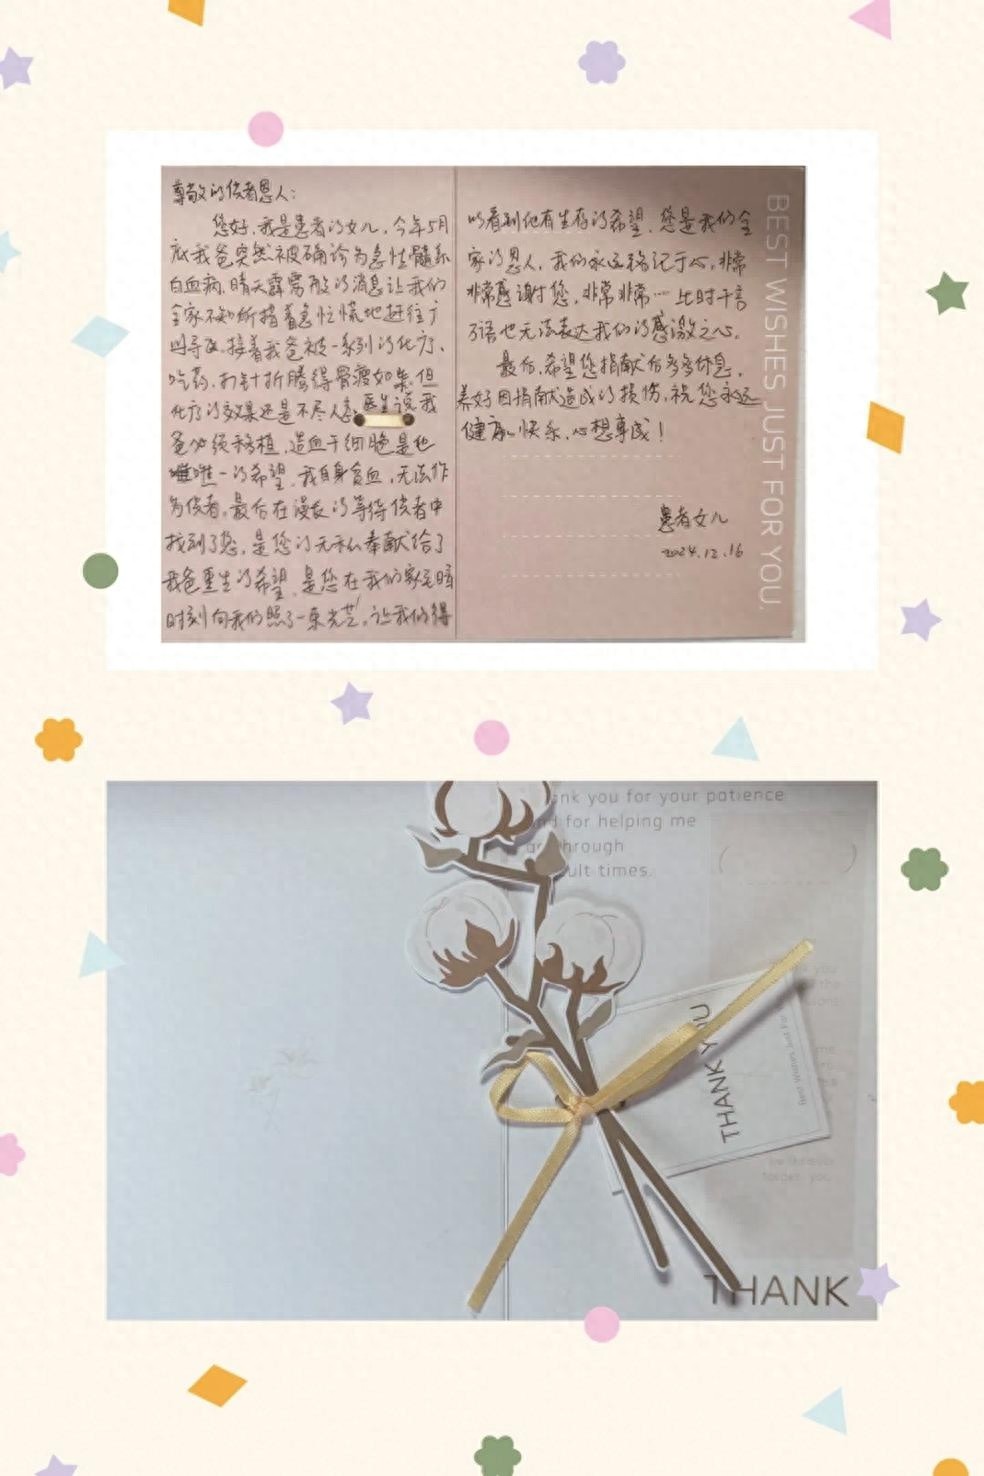 尊敬的供者恩人：
您好，我是患者的女儿，今年5月
底我爸突然被确诊为急性髓系
白血病，晴天霹雳般的消息让我们
全家不知所措着急忙慌地赶往广
州寻医，接着我爸被一系列的化疗、
吃药、打针折腾得骨瘦如柴，但
化疗的效果还是不尽人意，医生说我
爸必须移植，造血干细胞是他
唯一的希望，我自身贫血，无法作
为供者，最后在漫长的等待供者中
找到了您，是您的无私奉献给了
我爸重生的希望，是您在我们家至暗
时刻向我们照了一束光芒，让我们得
以看到他有生存的希望，您是我们全
家的恩人，我们永远铭记于心，非常
非常感谢您，非常非常…此时千言
万语也无法表达我们的感激之心。
最后，希望您捐献后多多休息，
养好因捐献造成的损伤，祝您永远
健康、快乐，心想事成！
患者女儿
2024.12.16
BEST WISHES JUST FOR YOU.
ank you for your patience
nd for helping me
through
ult times.
THANK YOU
Best Wishes Just For
THANK